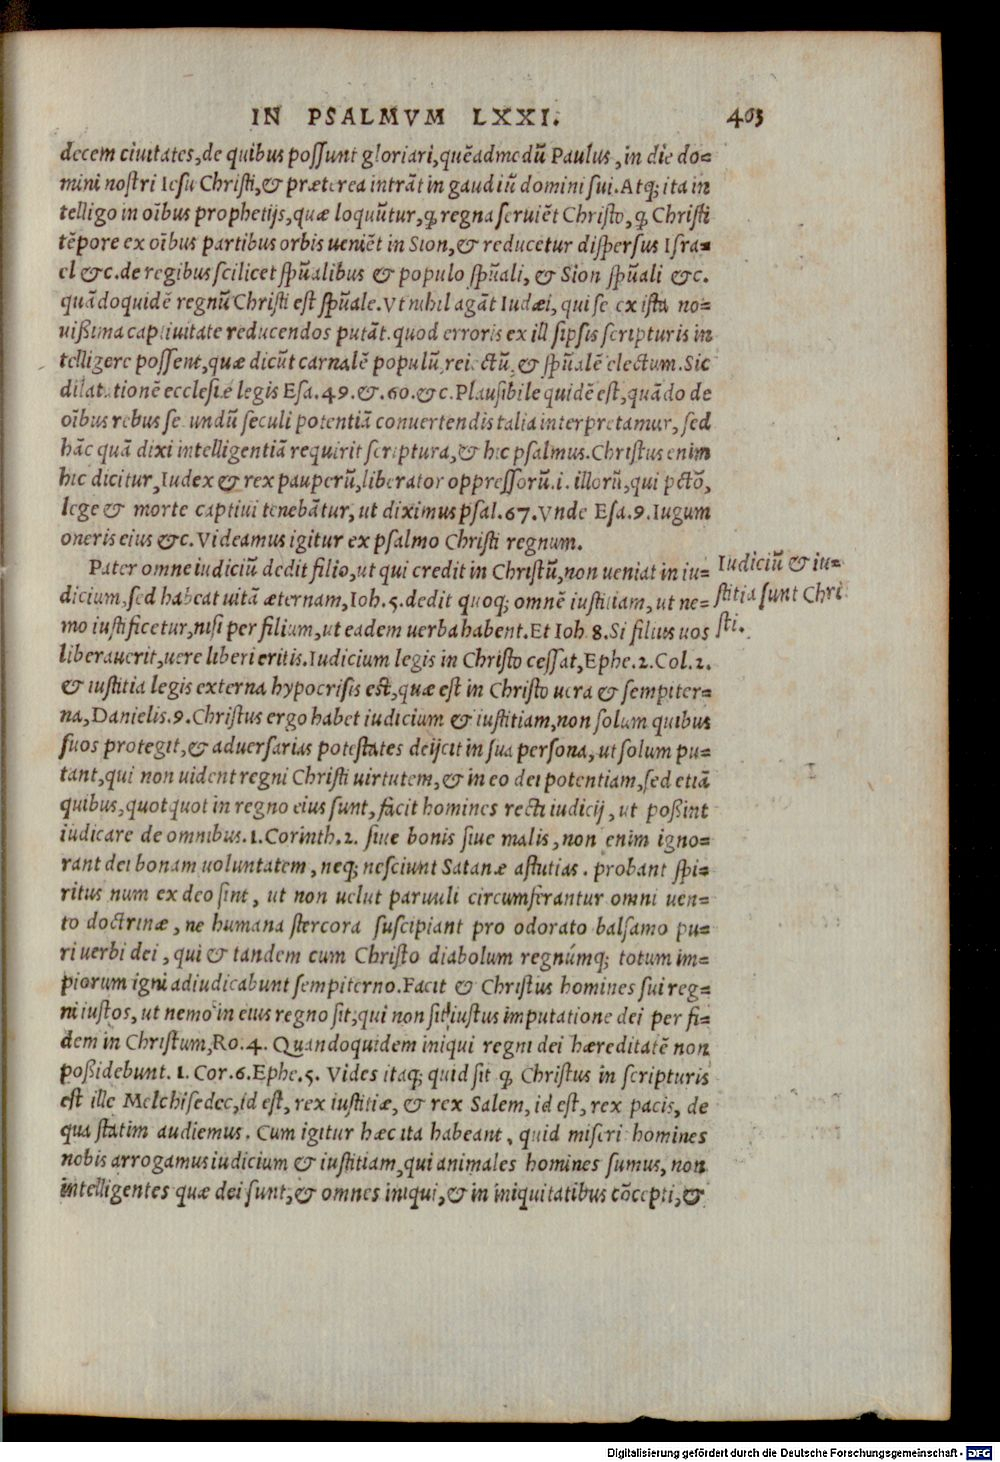 IN PSALMVM LXXI. 463
decem ciuitates, de quibus possunt gloriari, quẽadmodũ Paulus, in die do=
mini nostri Iesu Christi, & præterea intrãt in gaudiũ domini sui. Atq; ita in
telligo in oĩbus prophetijs, quæ loquũtur, ꝙ regna seruiẽt Christo, ꝙ Christi
tẽpore ex oĩbus partibus orbis ueniẽt in Sion, & reducetur dispersus Isra=
el &c. de regibus scilicet spũalibus & populo spũali, & Sion spũali &c.
quãdoquidẽ regnũ Christi est spũale. Vt nihil agãt Iudæi, qui se ex ista no=
uißima captiuitate reducendos putãt. quod erroris ex ill sipsis scripturis in
telligere possent, quæ dicũt carnalẽ populũ reiectũ, & spũalẽ electum. Sic
dilatationẽ ecclesiæ legis Esa. 49. &. 60. &c. Plausibile quidẽ est, quãdo de
oĩbus rebus secundũ seculi potentiã conuertendis talia interpretamur, sed
hãc quã dixi intelligentiã requirit scriptura, & hic psalmus. Christus enim
hic dicitur, Iudex & rex pauperũ, liberator oppressorũ .i. illorũ, qui pctõ,
lege & morte captiui tenebãtur, ut diximus psal. 67. Vnde Esa. 9. Iugum
oneris eius &c. Videamus igitur ex psalmo Christi regnum.
Pater omne iudiciũ dedit filio, ut qui credit in Christũ, non ueniat in iu=
dicium, sed habeat uitã æternam, Ioh. 5. dedit quoq; omnẽ iustitiam, ut ne=
mo iustificetur, nisi per filium, ut eadem uerba habent. Et Ioh 8. Si filius uos
liberauerit, uere liberi eritis. Iudicium legis in Christo cessat, Ephe. 2. Col. 2.
& iustitia legis externa hypocrisis est, quæ est in Christo uera & sempiter=
na, Danielis. 9. Christus ergo habet iudicium & iustitiam, non solum quibus
suos protegit, & aduersarias potestates deijcit in sua persona, ut solum pu=
tant, qui non uident regni Christi uirtutem, & in eo dei potentiam, sed etiã
quibus, quotquot in regno eius sunt, facit homines recti iudicij, ut poßint
iudicare de omnibus. 1. Corinth. 2. siue bonis siue malis, non enim igno=
rant dei bonam uoluntatem, neq; nesciunt Satanæ astutias. probant spi=
ritus num ex deo sint, ut non uelut paruuli circumferantur omni uen=
to doctrinæ, ne humana stercora suscipiant pro odorato balsamo pu=
ri uerbi dei, qui & tandem cum Christo diabolum regnúmq; totum im=
piorum igni adiudicabunt sempiterno. Facit & Christus homines sui reg=
ni iustos, ut nemo in eius regno sit, qui non sit iustus imputatione dei per fi=
dem in Christum, Ro. 4. Quandoquidem iniqui regni dei hæreditatẽ non
poßidebunt. 1. Cor. 6. Ephe. 5. Vides itaq; quid sit ꝙ Christus in scripturis
est ille Melchisedec, id est, rex iustitiæ, & rex Salem, id est, rex pacis, de
qua statim audiemus. Cum igitur hæc ita habeant, quid miseri homines
nobis arrogamus iudicium & iustitiam, qui animales homines sumus, non
intelligentes quæ dei sunt, & omnes iniqui, & in iniquitatibus cõcepti, &
Iudiciũ & iu=
stitia sunt Chri
sti.
Digitalisierung gefördert durch die Deutsche Forschungsgemeinschaft - DFG